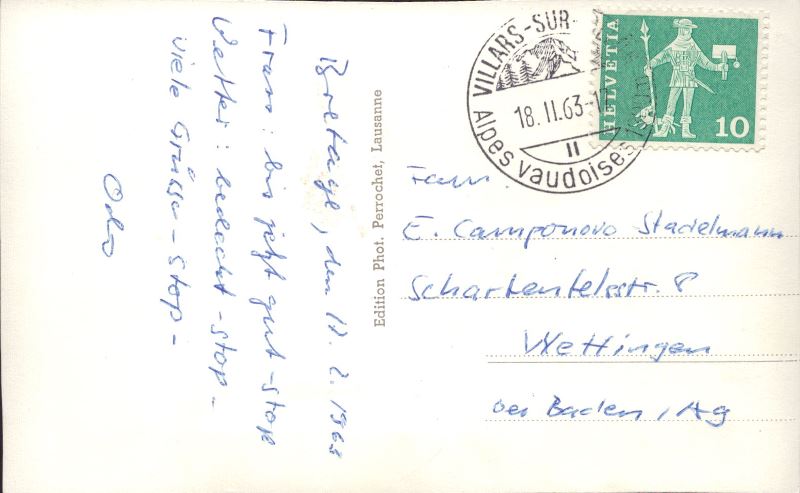 Bretaye, den 17. 2. 1963
Frass: bis jetzt gut - stop
Wetter: bedeckt - stop -
viele Grüsse - stop -
Odo
Edition Phot. Perrochet, Lausanne
VILLARS-SUR-
18.II.63-
11
Alpes vaudoises
HELVETIA
10
Fam.
E. Camponovo Stadelmann
Schartenfelsstr. 8
Wettingen
bei Baden, Ag